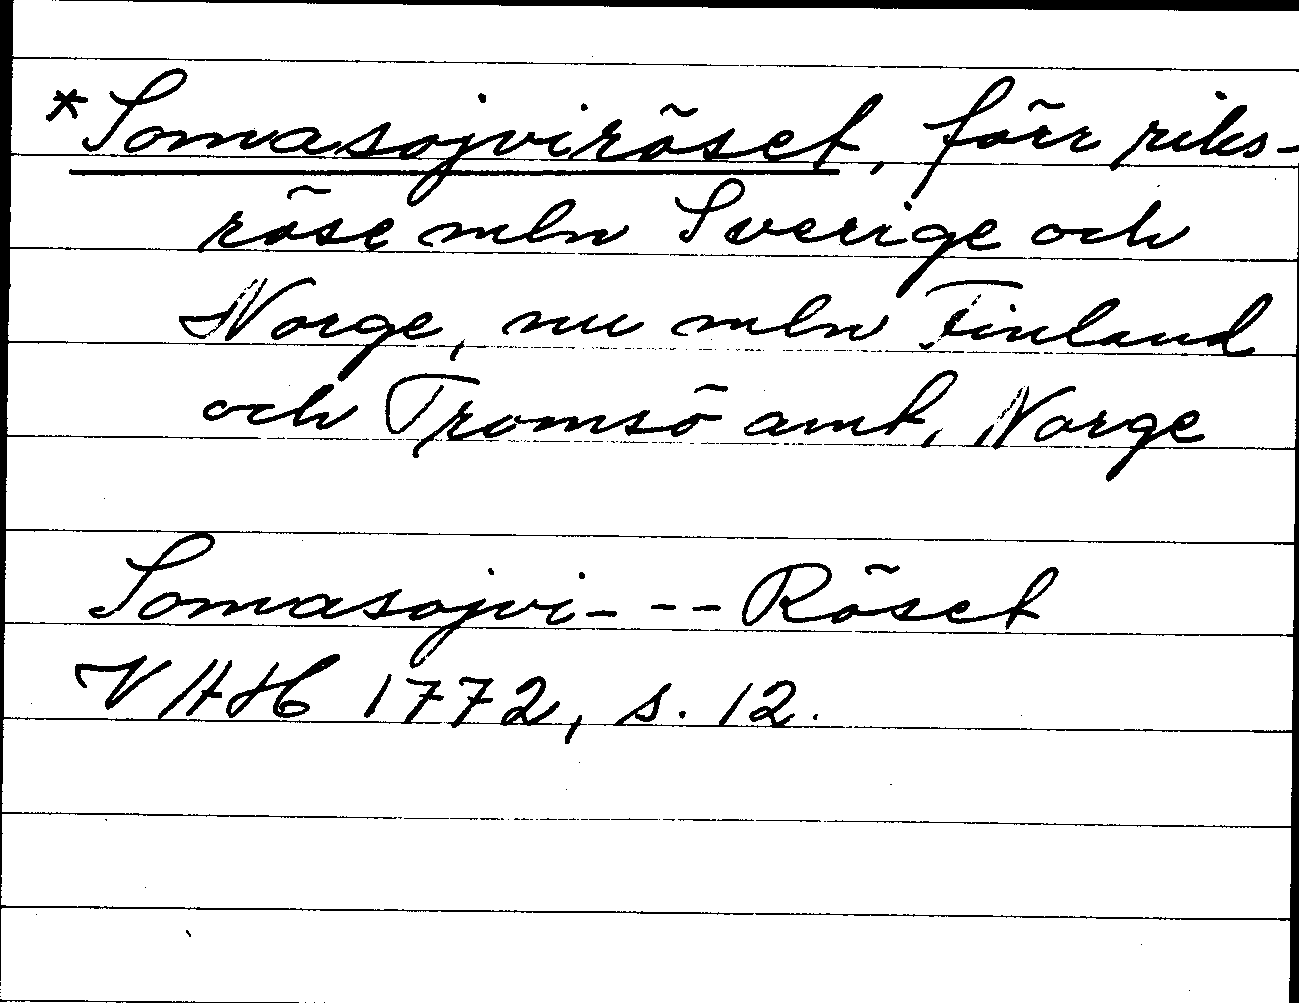 *Somasojviröset, förr riks-
röse mln Sverige och
Norge, nu mln Finland
och Tromsö amt, Norge
Somasojvi- - - Röset
VHAH 1772, s. 12.